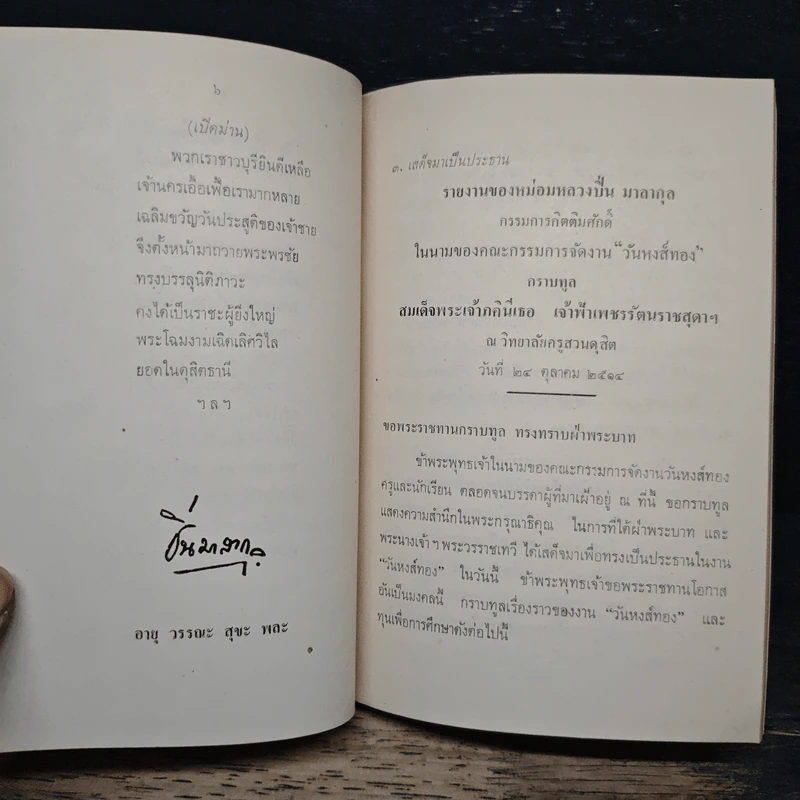 ๖
(เปิดม่าน)
พวกเราชาวบุรียินดีเหลือ
เจ้านครเอื้อเฟื้อเรามากหลาย
เฉลิมขวัญวันประสูติของเจ้าชาย
จึงตั้งหน้ามาถวายพระพรชัย
ทรงบรรลุนิติภาวะ
คงได้เป็นราชะผู้ยิ่งใหญ่
พระโฉมงามเฉิดเลิศวิไล
ยอดในดุสิตธานี
ฯ ล ฯ
ปิ่น มาลากุล
อายุ วรรณะ สุขะ พละ
๓. เสด็จมาเป็นประธาน
รายงานของหม่อมหลวงปิ่น มาลากุล
กรรมการกิตติมศักดิ์
ในนามของคณะกรรมการจัดงาน “วันหงส์ทอง”
กราบทูล
สมเด็จพระเจ้าภคินีเธอ เจ้าฟ้าเพชรรัตนราชสุดาฯ
ณ วิทยาลัยครูสวนดุสิต
วันที่ ๒๔ ตุลาคม ๒๕๑๔
ขอพระราชทานกราบทูล ทรงทราบฝ่าพระบาท
ข้าพระพุทธเจ้าในนามของคณะกรรมการจัดงานวันหงส์ทอง
ครูและนักเรียน ตลอดจนบรรดาผู้ที่มาเฝ้าอยู่ ณ ที่นี้ ขอกราบทูล
แสดงความสำนึกในพระกรุณาธิคุณ ในการที่ใต้ฝ่าพระบาท และ
พระนางเจ้าฯ พระวรราชเทวี ได้เสด็จมาเพื่อทรงเป็นประธานในงาน
“วันหงส์ทอง” ในวันนี้ ข้าพระพุทธเจ้าขอพระราชทานโอกาส
อันเป็นมงคลนี้ กราบทูลเรื่องราวของงาน “วันหงส์ทอง” และ
ทุนเพื่อการศึกษาดังต่อไปนี้